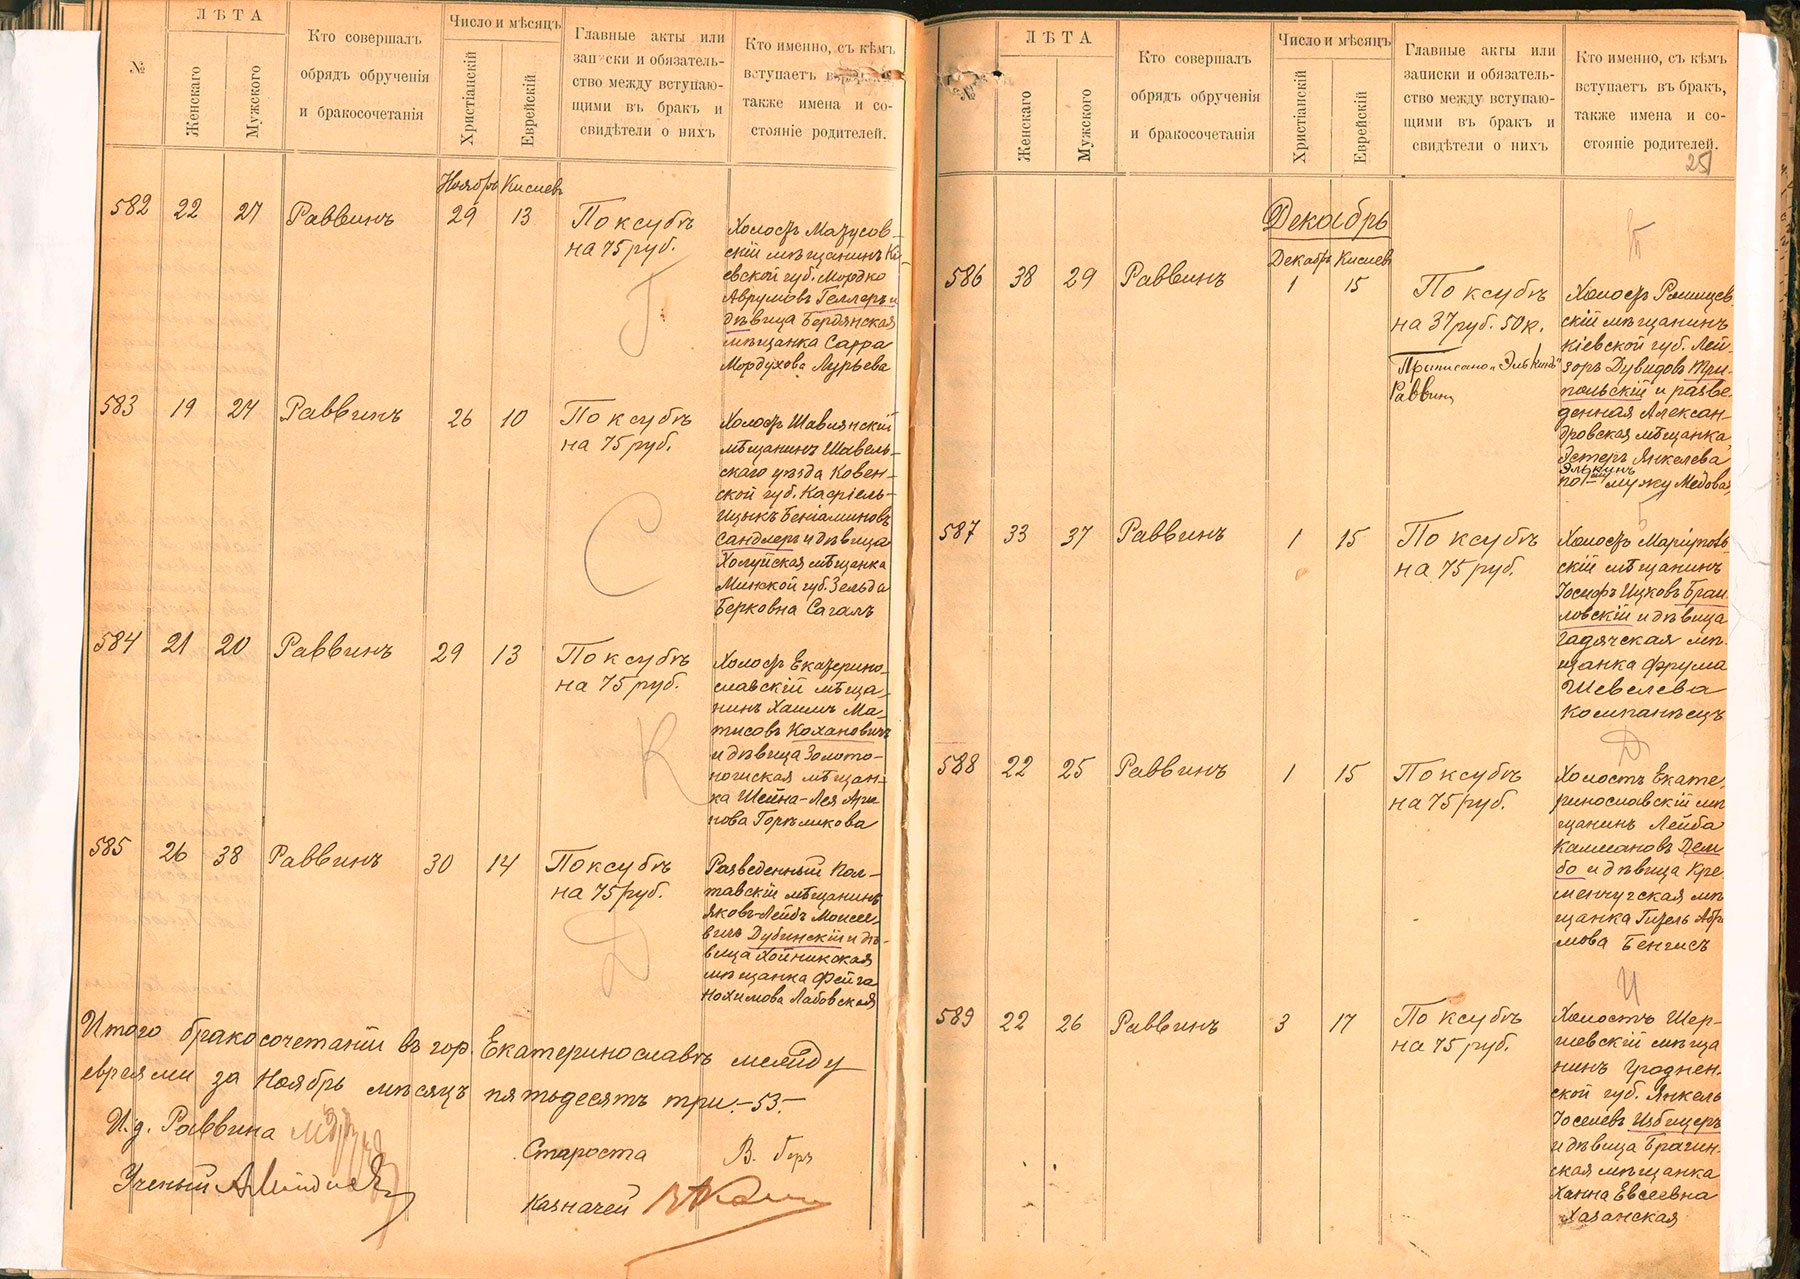 №
ЛѢТА
Женскаго
Мужского
Кто совершалъ
обрядъ обрученія
и бракосочетанія
Число и мѣсяцъ
Христіанскій
Еврейскій
Главные акты или
записки и обязатель-
ство между вступаю-
щими въ бракъ и
свидѣтели о нихъ
Кто именно, съ кѣмъ
вступаетъ въ
также имена и со-
стояніе родителей.
Ноябрь Кислевъ
582 22 27 Раввинъ 29 13
По ксубѣ
на 75 руб.
Г
Холостъ Мазусов-
скій мѣщанинъ Кі-
евской губ. Мордко
Аврумовъ Геллеръ и
дѣвица Бердянская
мѣщанка Сарра
Мордухова Лурьева
583 19 24 Раввинъ 26 10
По ксубѣ
на 75 руб.
С
Холостъ Шавлянскій
мѣщанинъ Шавель-
скаго уѣзда Ковен-
ской губ. Кафіель-
Ицыкъ Беніаминовъ
Сандлеръ и дѣвица
Холуйская мѣщанка
Минской губ. Зельда
Берковна Сагалъ
584 21 20 Раввинъ 29 13
По ксубѣ
на 75 руб.
К
Холостъ Екатерино-
славскій мѣща-
нинъ Хаимъ Ма-
тисовъ Кохановичъ
и дѣвица Золото-
ношская мѣщан-
ка Шейна-Лея
нова Горѣликова
585 26 38 Раввинъ 30 14
По ксубѣ
на 75 руб.
Д
Разведенный Пол-
тавскій мѣщанинъ
Яковъ-Лейбъ Моисее-
вичъ Дубинскій и дѣ-
вица Хойникская
мѣщанка Фейга
Нохимова Лабовская
Итого бракосочетаній въ гор. Екатеринославѣ между
евреями за Ноябрь мѣсяцъ пятьдесятъ три. -53.-
И. д. Раввина
Староста В. Геръ
Ученый
Казначей
№
ЛѢТА
Женскаго
Мужского
Кто совершалъ
обрядъ обрученія
и бракосочетанія
Число и мѣсяцъ
Христіанскій
Еврейскій
Главные акты или
записки и обязатель-
ство между вступаю-
щими въ бракъ и
свидѣтели о нихъ
Кто именно, съ кѣмъ
вступаетъ въ бракъ,
также имена и со-
стояніе родителей.
25
Декабрь
Декабрь Кислевъ
586 38 29 Раввинъ 1 15
По ксубѣ
на 37 руб. 50 к.
Приписано "Элькинъ"
Раввинъ
Т
Холостъ Ромищев-
скій мѣщанинъ
Кіевской губ. Лей-
зоръ Дувидовъ Три-
польскій и разве-
денная Алексан-
дровская мѣщанка
Эстеръ Янкелева
Элькинъ
по мужу Медовая
587 33 37 Раввинъ 1 15
По ксубѣ
на 75 руб.
Б
Холостъ Маріуполь-
скій мѣщанинъ
Іосифъ Ицковъ Браи-
ловскій и дѣвица
Гадячская мѣ-
щанка Фрума
Шевелева
Компанѣецъ
588 22 25 Раввинъ 1 15
По ксубѣ
на 75 руб.
Д
Холостъ Екате-
ринославскій мѣ-
щанинъ Лейба
Калмановъ Дем-
бо и дѣвица Кре-
менчугская мѣ-
щанка Гизель Абра-
мова Бенгисъ
589 22 26 Раввинъ 3 17
По ксубѣ
на 75 руб.
И
Холостъ Шер-
шевскій мѣща-
нинъ Гроднен-
ской губ. Янкель
Іоселевъ Избицеръ
и дѣвица Брагин-
ская мѣщанка
Ханна Евсеевна
Хазанская